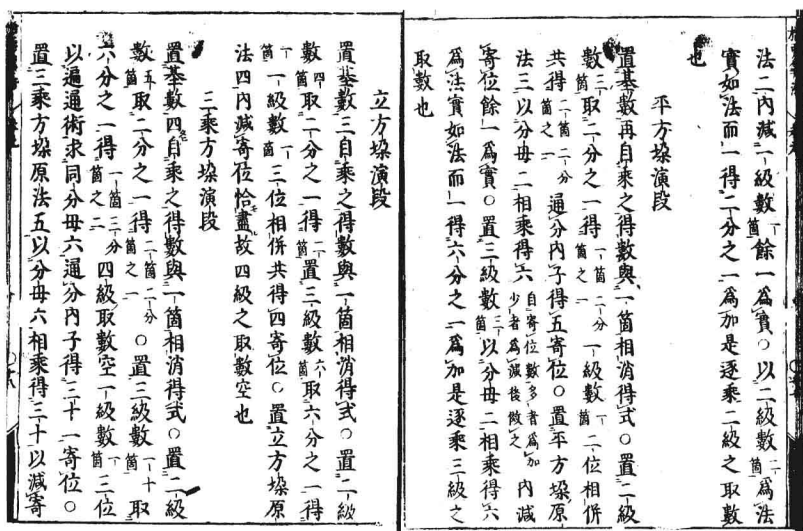 法二内減一級數一箇餘一爲實○以二級數二箇爲法
實如法而一得二分之一爲加是逐乘二級之取數
也
平方垜演段
置基數再自乘之得數與一箇相消得式○置二級
數三箇取二分之一得一箇二分箇之一一級數一箇二位相併
共得二箇二分箇之一通分内子得五寄位○置平方垜原
法三以分母二相乘得六自寄位數多者爲加少者爲減後倣之内減
寄位餘一爲實○置三級數三箇以分母二相乘得六
爲法實如法而一得六分之一爲加是逐乘三級之
取數也
立方垜演段
置基數三自乘之得數與一箇相消得式○置二級
數四箇取二分之一得二箇置三級數六箇取六分之一得
一箇一級數一箇三位相併共得四寄位○置立方垜原
法四内減寄位恰盡故四級之取數空也
三乘方垜演段
置基數四自乘之得數與一箇相消得式○置二級
數五箇取二分之一得二箇二分箇之一○置三級數一十箇取
六分之一得一箇三分箇之二四級取數空一級數一箇三位
以遍通術求同分母六通分内子得三十一寄位○
置三乘方垜原法五以分母六相乘得三十以減寄